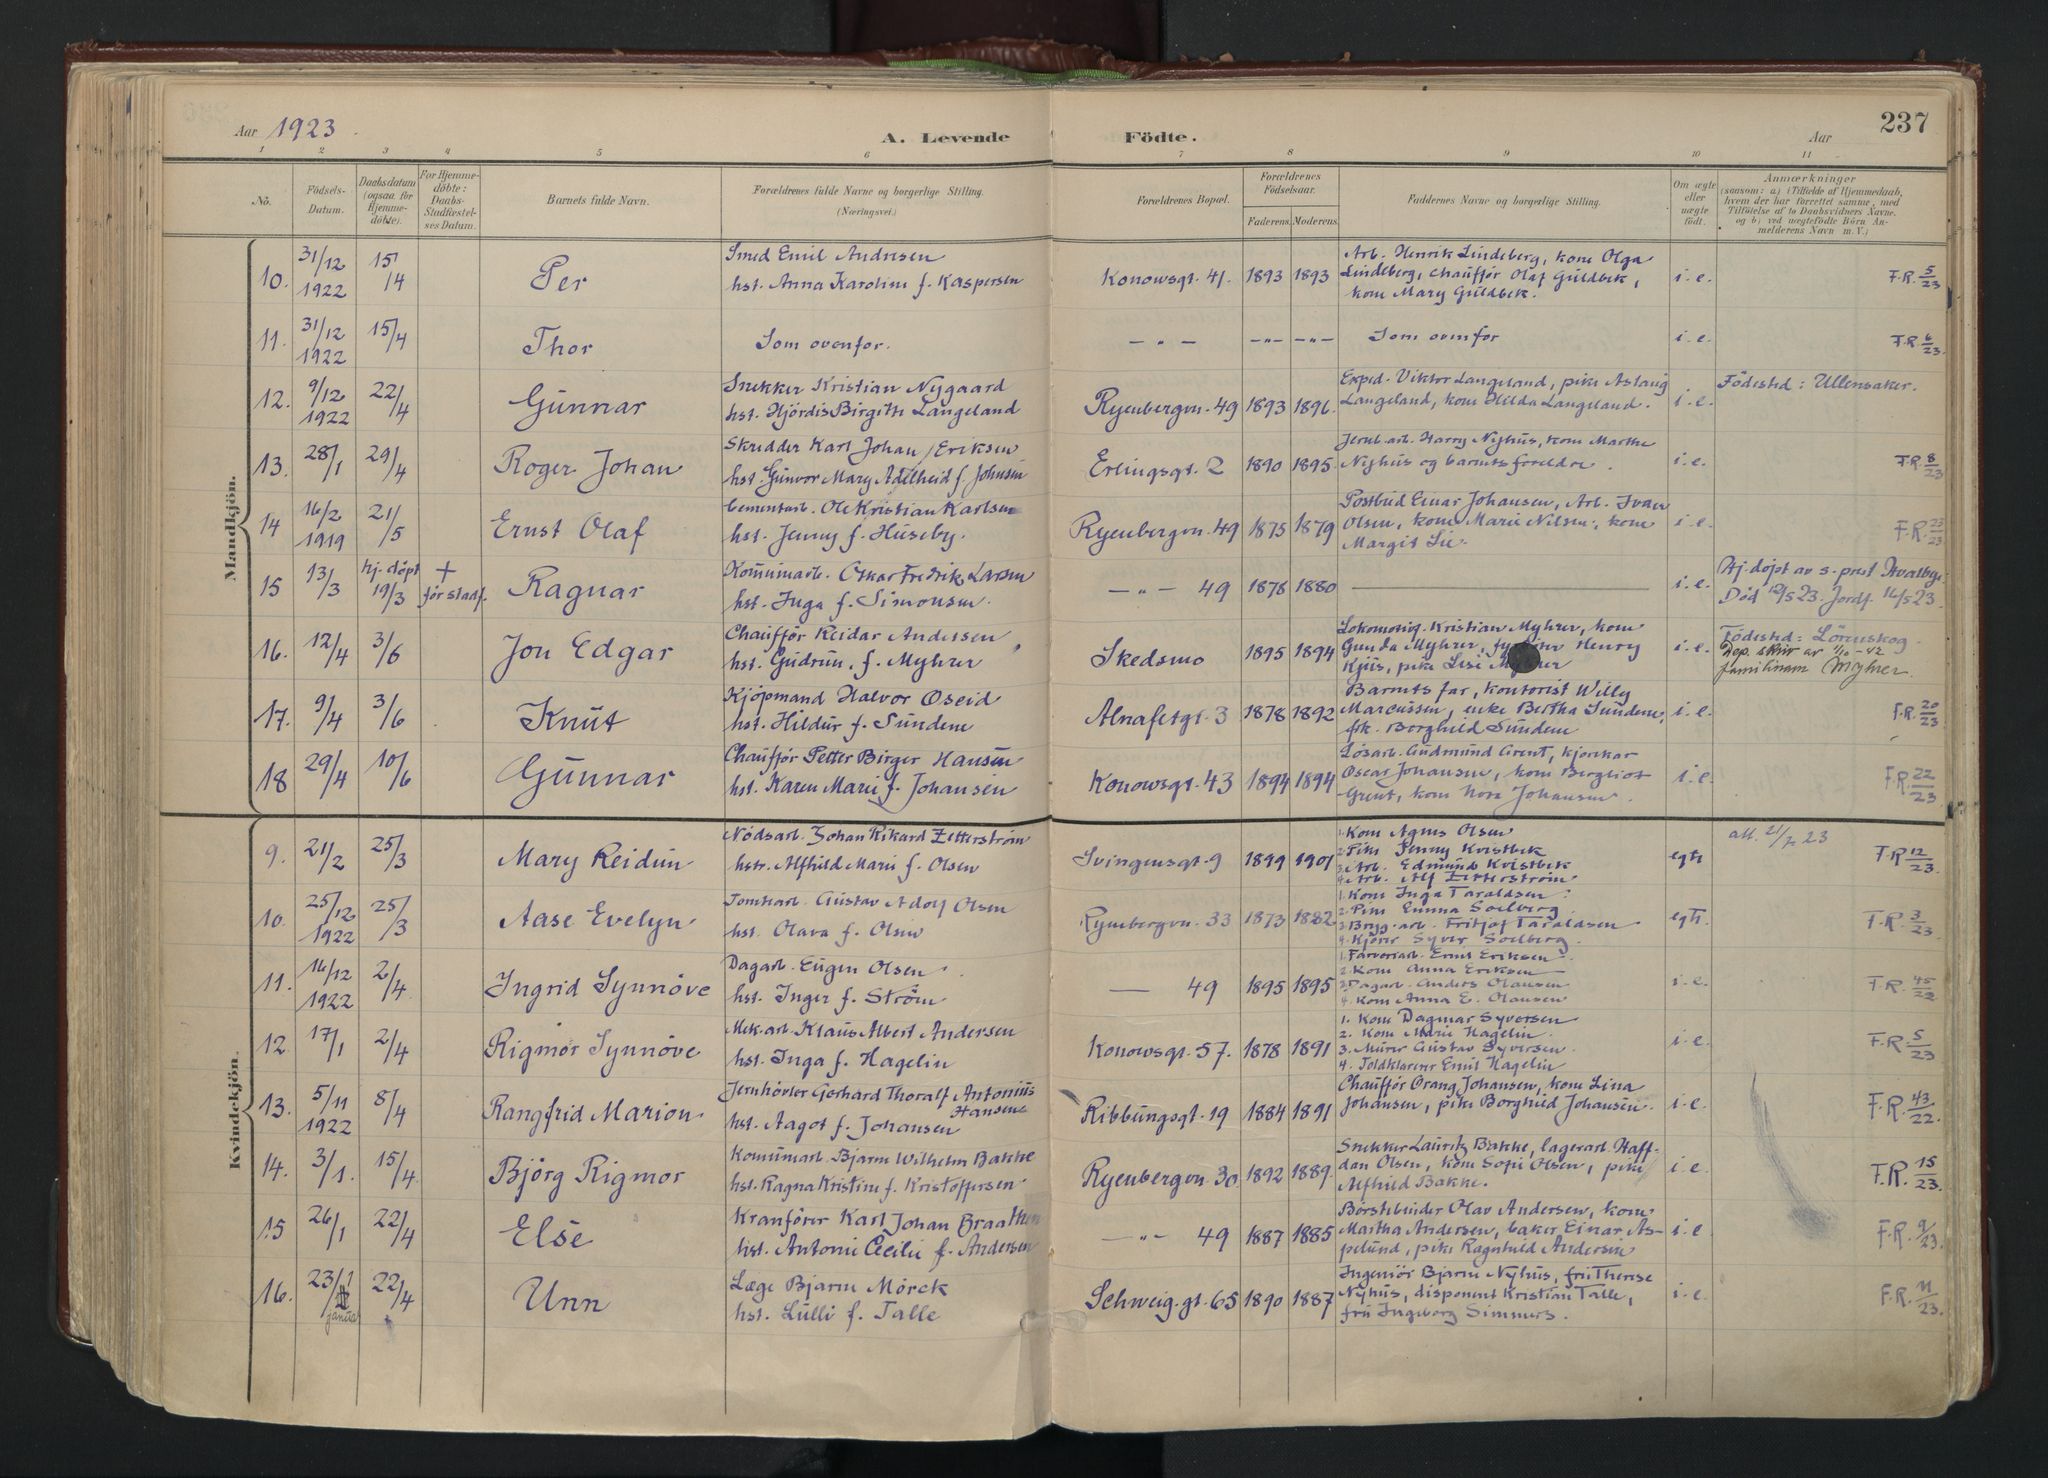 Aar 1923.
A. Levende Födte.
Aar
237
1 2 3 4 5 6 7 8 9 10 11
No.
Födsels-Datum.
Daabsdatum (ogsaa for Hjemme-döbte).
For Hjemme-döbte: Daabs-Stadfæstel-ses Datum.
Barnets fulde Navn.
Forældrenes fulde Navne og borgerlige Stilling. (Næringsvei.)
Forældrenes Bopæl.
Forældrenes Födselsaar.
Faderens. Moderens.
Faddernes Navne og borgerlige Stilling.
Om ægte eller uægte födt.
Anmærkninger
(saasom: a) i Tilfælde af Hjemmedaab, hvem der har forrettet samme, med Tilföielse af to Daabsvidners Navne. og b) ved uægtefödte Börn An-melderens Navn m. V.)
Mandkjön.
10. 31/12 1922 15/4 Per
Smed Emil Andresen
hst. Anna Karoline f. Kaspersen
Konowsgt. 41. 1893 1893
Arb. Henrik Lindeberg, kone Olga
Lindeberg, Chaufför Olaf Guldbek,
kone Mary Guldbek.
i. e. F.R. 5/23
11. 31/12 1922 15/4 Thor
Som ovenfor.
— " — —"— —"—
Som ovenfor
i. e. F.R. 6/23.
12. 9/12 1922 22/4 Gunnar
Snekker Kristian Nygaard
hst. Hjördis Birgithe Langeland
Ryenbergvn. 49 1893 1896.
Exped. Viktor Langeland, pike Aslaug
Langeland, kone Hilda Langeland.
i. e. Födested: Ullensaker.
13. 28/1 29/4 Roger Johan
Skredder Karl Johan Eriksen
hst. Gunvor Mary Adelheid f. Johnsen
Erlingsgt. 2 1890 1895.
Jernb.arb. Harry Nyhus, kone Marthe
Nyhus og barnets foreldre.
i. e. F.R. 8/23
14 16/2 1919 21/5 Ernst Olaf
Cementarb. Ole Kristian Karlsen
hst. Jenny f. Huseby.
Ryenbergvn. 49 1875 1879
Postbud Einar Johansen, Arb. Ivar
Olsen, kone Marie Nilsen, kone
Margit Lie.
i. e. F.R. 23/23
15 13/3 hj. döpt 19/3 + för stadf. Ragnar
Kommunearb. Oskar Fredrik Larsen
hst. Inga f. Simonsen.
— " — 49 1878 1880
i. e. Hj. döpt av s. prest Hvalbye
Död 12/5 23. Jordf. 16/5 23.
16. 12/4 3/6 Jon Edgar
Chauffför Reidar Andersen
hst. Gudrun, f. Myhrer
Skedsmo 1895 1894
Lokomotivf. Kristian Myhrer, kone
Gunda Myhrer, fyrböter Henry
Kjus, pike Lisi Myhrer
i. e. Födested: Lörenskog
Dep. skriv av 1/10-42
familienavn Myhrer.
17. 9/4 3/6 Knut
Kjöpmand Halvor Oseid
hst. Hildur f. Sundene
Alnafetgt. 3 1878 1892
Barnets far, kontorist Willy
Marcussen, enke Bertha Sundene,
frk. Borghild Sundene
i. e. F.R. 20/23
18 29/4 10/6 Gunnar
Chauffför Petter Birger Hansen
hst. Karen Marie f. Johansen
Konowsgt. 43 1894 1894
Lösarb. Gudmund Grent, kjörekar
Oscar Johansen, kone Bergliot
Grent, kone Nora Johansen.
i. e. F.R. 22/23.
Kvindekjön.
9. 21/2 25/3 Mary Reidun
Nödsarb. Johan Rikard Zetterström
hstr. Alfhild Marie f. Olsen
Svingensgt. 9 1899 1901
1. Kone Agnes Olsen
2. Pike Jenny Kvistbek
3. Arb. Edmund Kvistbek
4. Arb. Alf Zetterström
egte att. 21/7 23 F.R. 12/23.
10. 25/12 1922 25/3 Aase Evelyn
Tomtearb. Gustav Adolf Olsen
hst. Olava f. Olsen
Ryenbergvn. 33 1873 1882
1. Kone Inga Taraldsen
2. Pike Emma Soelberg
3. Brygg.arb. Fritjof Taraldsen
4. Kjörer Syver Soelberg.
egte. F.R. 3/23
11. 16/12 1922 2/4 Ingrid Synnöve
Dagarb. Eugen Olsen
hst. Inger f. Ström
— 49 1895 1895
1. Farveriarb. Ernst Eriksen
2. Kone Anna Eriksen
3. Dagarb. Anders Olausen
4. Kone Anna E. Olausen
i. e. F.R. 45/22
12 17/1 2/4 Rigmor Synnöve
Mek.arb. Klaus Albert Andersen
hst. Inga f. Hagelin
Konowsgt. 57. 1878 1891
1. Kone Dagmar Syversen
2. Kone Marie Hagelin.
3. Murer Gustav Syversen.
4. Toldklarerer Emil Hagelin
i. e. F.R. 5/23
13. 5/11 1922 8/4 Rangfrid Marion.
Jernhövler Gerhard Thoralf Antonius
Hansen
hst. Aagot f. Johansen
Ribbungsgt. 19 1884 1891
Chauffför Orang Johansen, kone Lina
Johansen, pike Borghild Johansen.
i. e. F.R. 43/22.
14. 3/1. 15/4 Björg Rigmor
Kommunearb. Bjarne Wilhelm Bakke
hst. Ragna Kristine f. Kristoffersen
Ryenbergvn. 30. 1892 1889.
Snekker Lauritz Bakke, lagerarb. Haff-
dan Olsen, kone Sofie Olsen, pike
Alfhild Bakke.
i. e. F.R. 15/23.
15 26/1 22/4 Else
Kranförer Karl Johan Braathen
hst. Antonie Cecilie f. Andersen
— " — 49 1887 1885
Börstebinder Olav Andersen, kone
Martha Andersen, baker Einar As-
pelund, pike Ragnhild Andersen
i. e. F.R. 9/23.
16. 23/1 januar 22/4 Unn
Læge Bjarne Mörck
hst. Lulli f. Talle
Schweig.gt. 65 1890 1887
Ingeniör Bjarne Nyhus, fru Therese
Nyhus, disponent Kristian Talle,
fru Ingeborg Simmers.
i. e. F.R. 11/23.